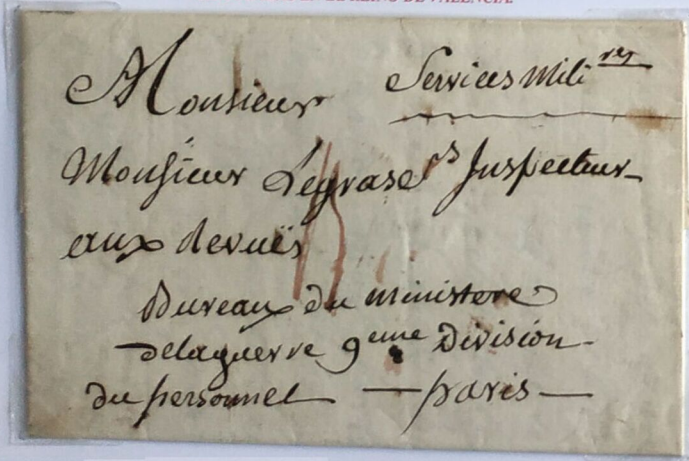 REINO DE VALENCIA
Services Mili^res
Monsieur
Monsieur Legras Inspecteur
aux Revuës
Bureau du ministere
delaguerre 9^eme Division
du personnel — paris —